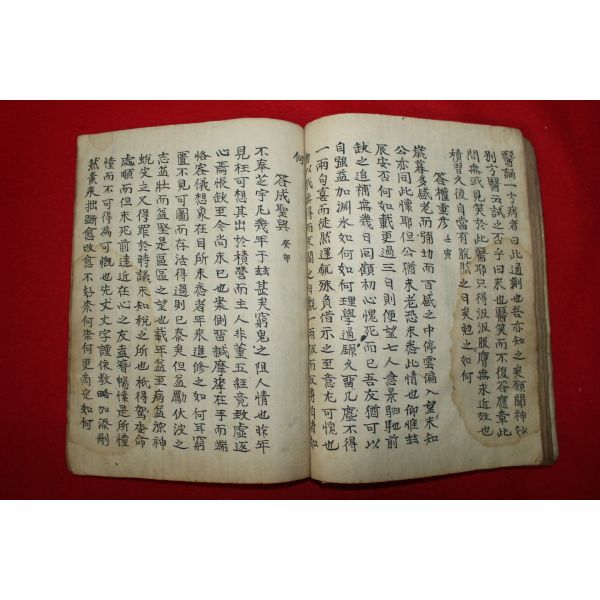 醫論一方病者曰此適劑也吾亦知之矣願聞神妙
別方醫云試之否乎曰未也醫笑而不復答鷹章此
問無或見笑於此醫耶只得汲汲服膺無求近效也
積習久後自當有脫然之日矣勉之如何
答權重彥 壬寅
歲暮多感老而彌切而百感之中停雲偏入望未知
公亦同此懷耶但公猶未老恐未悉此情也仰惟玆
辰安否何如載更過三日則便望七人念景駟馳前
缺之追補無幾日回顧初心愧死而已吾友猶可以
自強益加淵氷如何如何理學通錄久留几塵不得
一兩句喜而徒然還瓻殊負借示之至意尤可愧也
何
答成聖與 癸卯
不奉芝宇凡幾年于玆甚矣窮鬼之沮人情也昨年
見枉可想其出於積營而主人非董五經竟致虛返
心焉悵缺至今尚未已也案側留誠齋在手而端
恪客儀想來在目所未悉者年來進修之如何耳窮
置不見可圖而存活得過則已泰矣但益勵伏波之
志益壯而益堅是區區之望也載年益至病益添神
蛻安之又得罪於時議未知稅之所也祇得駕委命
處順而但未死前遠近在心之友益簪暢懷是所憧
憧而不可得爲可慨也先丈文字謹依敎略加添刪
然素來拙斷愈改愈不好奈何奈何更商定如何